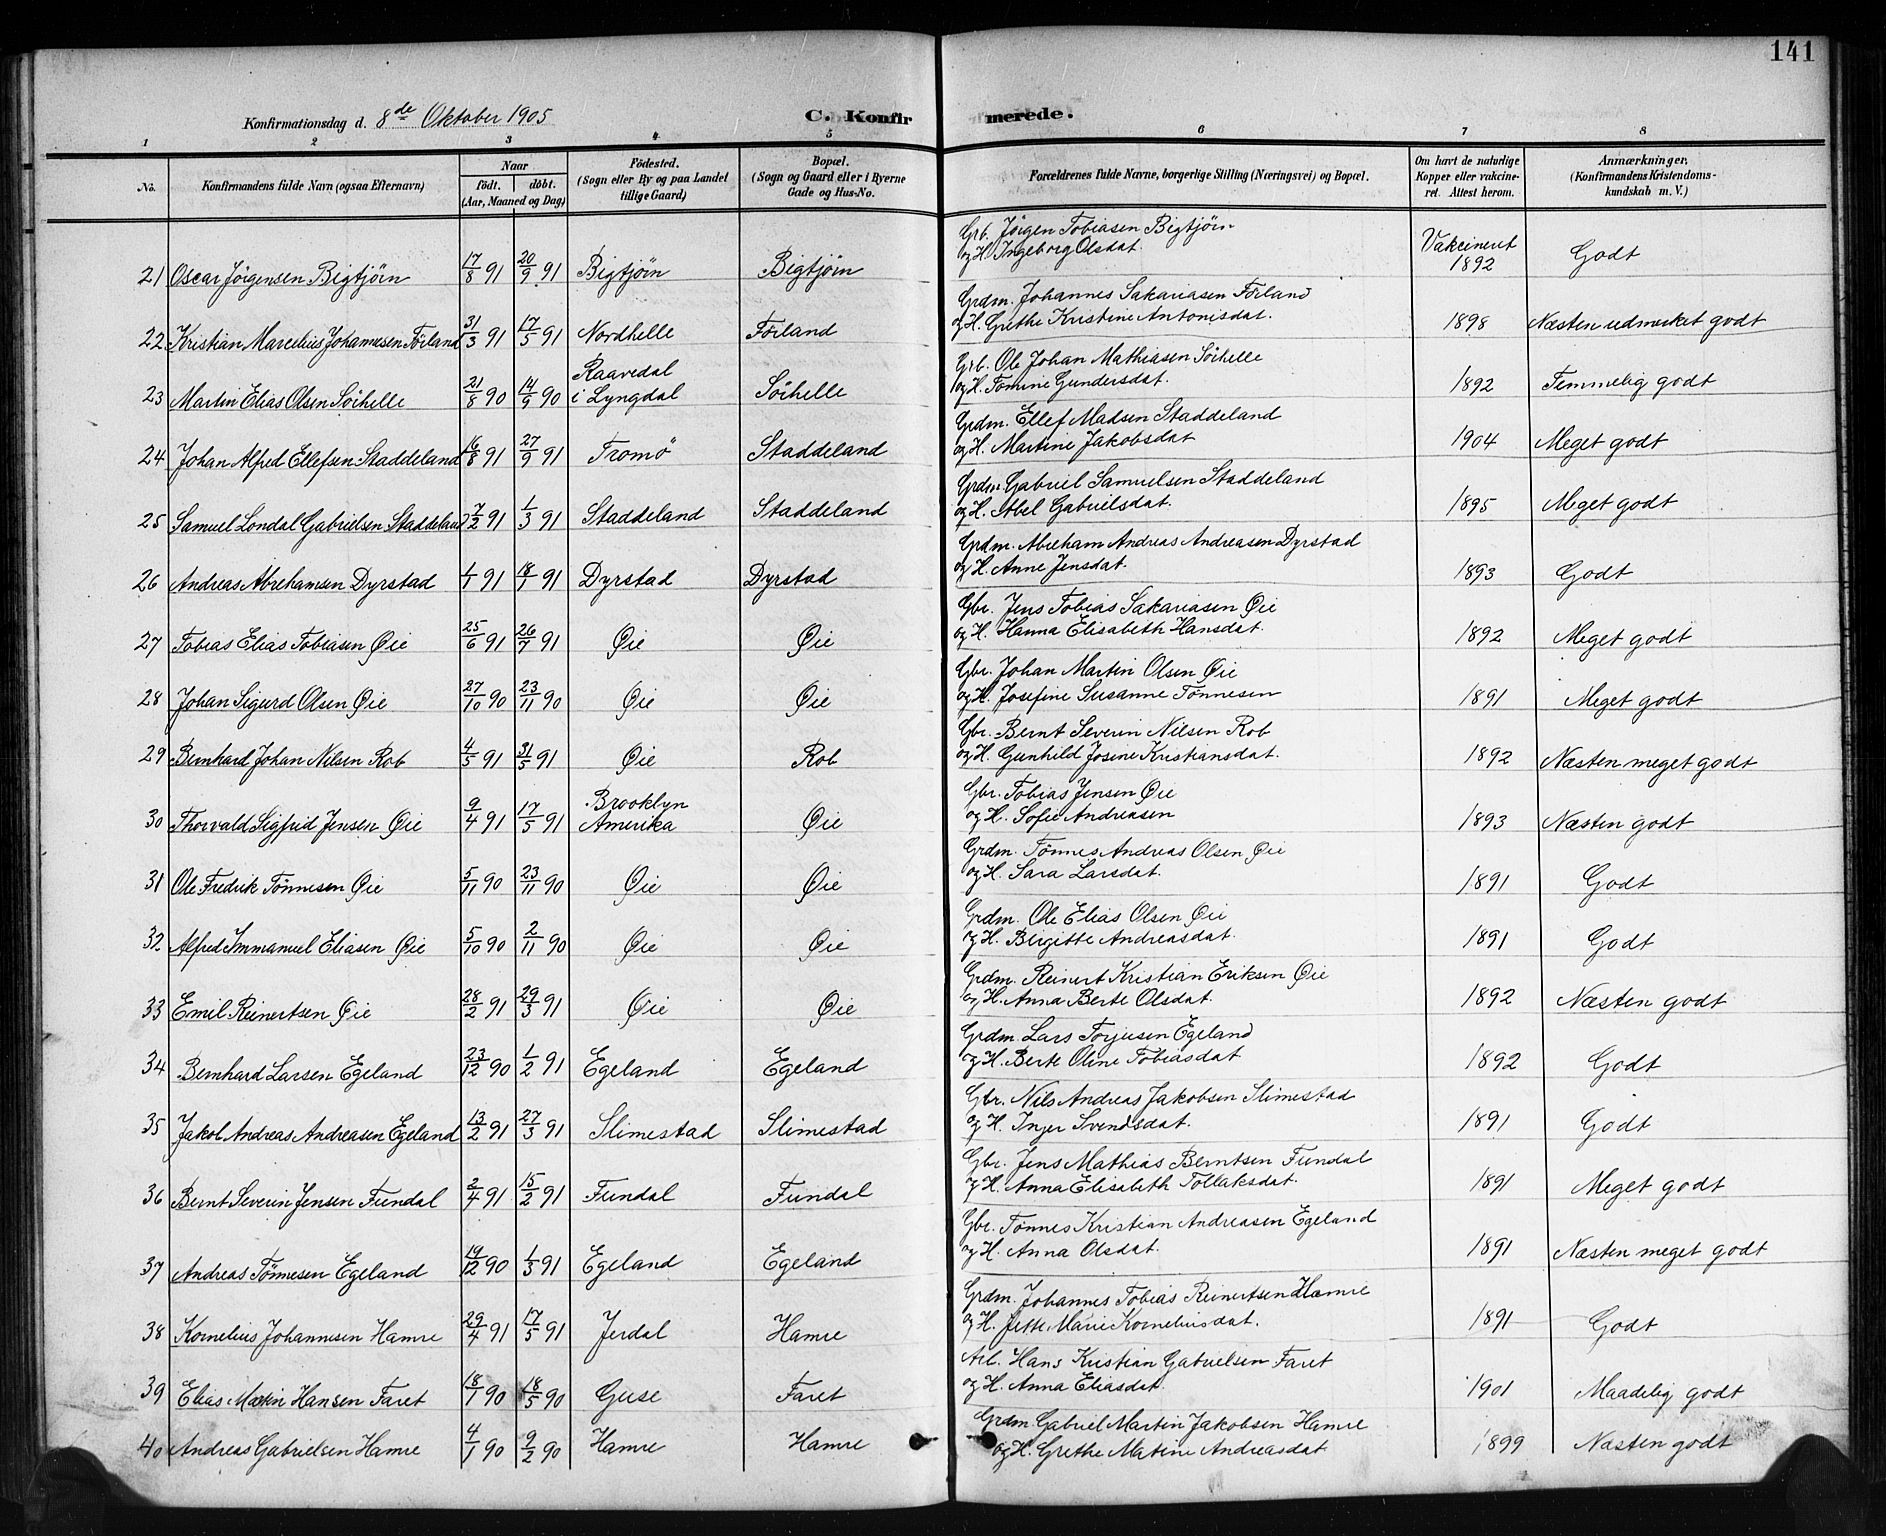 141
Konfirmationsdag d. 8de Oktober 1905
C. Konfirmerede.
1 2 3 4 5 6 7 8
No. Konfirmandens fulde Navn (ogsaa Efternavn) Naar födt. döbt. (Aar, Maaned og Dag) Födested. (Sogn eller By og paa Landet tillige Gaard) Bopæl. (Sogn og Gaard eller i Byerne Gade og Hus-No. Forældrenes fulde Navne, borgerlige Stilling (Næringsvei) og Bopæl. Om havt de naturlige Kopper eller vakcineret. Attest herom. Anmærkninger. (Konfirmandens Kristendomskundskab m. V.)
Grb. Jörgen Tobiasen Bigtjörn
21 Oscar Jörgensen Bigtjörn 17/8 91 20/9 91 Bigtjörn Bigtjörn og H. Ingeborg Olsdat. Vakcineret 1892 Godt
Grdm. Johannes Sakariasen Förland
22 Kristian Marcelius Johannesen Förland 31/3 91 17/5 91 Nordhelle Förland og H. Grethe Kristine Antonisdat. 1898 Næsten udmerket godt
Grb. Ole Johan Mathiasen Söihelle
23 Martin Elias Olsen Söihelle 21/8 90 14/9 90 Raavedal i Lyngdal Söihelle og H. Tomine Gundersdat. 1892 Temmelig godt
Grdm. Ellef Madsen Staddeland
24 Johan Alfred Ellefsen Staddeland 16/8 91 27/9 91 Tromö Staddeland og H. Martine Jakobsdat 1904 Meget godt
Grdm. Gabriel Samuelsen Staddeland
25 Samuel Londal Gabrielsen Staddeland 7/2 91 1/3 91 Staddeland Staddeland og H. Abel Gabrielsdat. 1895 Meget godt
Grdm. Abreham Andreas Andreasen Dyrstad
26 Andreas Abrehamsen Dyrstad 1/1 91 18/1 91 Dyrstad Dyrstad og H. Anne Jensdat. 1893 Godt
Gbr. Jens Tobias Sakariasen Øie
27 Tobias Elias Tobiasen Øie 25/6 91 26/7 91 Øie Øie og H. Hanna Elisabeth Hansdat. 1892 Meget godt
Gbr. Johan Martin Olsen Øie
28 Johan Sigurd Olsen Øie 27/10 90 23/11 90 Øie Øie og H. Josefine Susanne Tönnesen 1891 Meget godt
Gbr. Bernt Severin Nilsen Rob
29 Bernhard Johan Nilsen Rob 4/5 91 31/5 91 Øie Rob og H. Gunhild Josine Kristiansdat. 1892 Næsten meget godt
Gbr. Tobias Jensen Øie
30 Thorvald Sigfrid Jensen Øie 9/4 91 17/5 91 Brooklyn Amerika Øie og H. Sofie Andreasen 1893 Næsten godt
Grdm. Tönnes Andreas Olsen Øie
31 Ole Fredrik Tönnesen Øie 5/11 90 23/11 90 Øie Øie og H. Sara Larsdat. 1891 Godt
Grdm. Ole Elias Olsen Øie
32 Alfred Immanuel Eliasen Øie 5/10 90 2/11 90 Øie Øie og H. Birgitte Andreasdat. 1891 Godt
Grdm. Reinert Kristian Eriksen Øie
33 Emil Reinertsen Øie 28/2 91 29/3 91 Øie Øie og H. Anna Berte Olsdat. 1892 Næsten godt
Grdm. Lars Torjusen Egeland
34 Bernhard Larsen Egeland 23/12 90 1/2 91 Egeland Egeland og H. Berte Oline Tobiasdat 1892 Godt
Gbr. Nils Andreas Jakobsen Slimestad
35 Jakob Andreas Andreasen Egeland 13/2 91 27/3 91 Slimestad Slimestad og H. Inger Svendsdat. 1891 Godt
Gbr. Jens Mathias Berntsen Fundal
36 Bernt Severin Jensen Fundal 2/4 91 15/2 91 Fundal Fundal og H. Anna Elisabeth Tollaksdat. 1891 Meget godt
Gbr. Tönnes Kristian Andreasen Egeland
37 Andreas Tönnesen Egeland 19/12 90 1/3 91 Egeland Egeland og H. Anna Olsdat. 1891 Næsten meget godt
Grdm. Johannes Tobias Reinertsen Hamre
38 Kornelius Johannesen Hamre 29/4 91 17/5 91 Jerdal Hamre og H. Jette Marie Korneliusdat. 1891 Godt
Arb. Hans Kristian Gabrielsen Faret
39 Elias Martin Hansen Faret 18/1 90 18/5 90 Guse Faret og H. Anna Eliasdat. 1901 Maadelig godt
Grdm. Gabriel Martin Jakobsen Hamre
40 Andreas Gabrielsen Hamre 4/1 90 9/2 90 Hamre Hamre og H. Grethe Matine Andreasdat 1899 Næsten godt